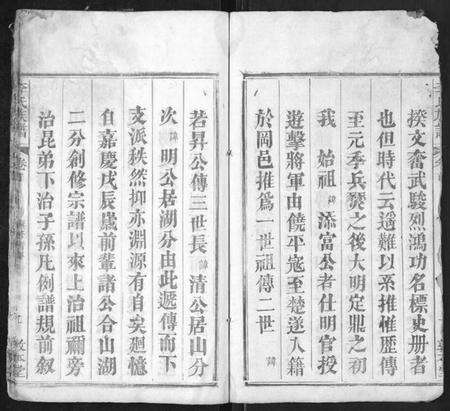 揆文奮武駿烈鴻功名標史册者
也但時代云遥難以系推惟歷傳
至元季兵發之後大明定鼎之初
我 始祖 諱 添富公者仕明官授
遊擊將軍由饒平寇至楚遂入籍
於岡邑推爲一世祖傳二世 諱
若昇公傳三世長 諱 清公居山分
次 諱 明公居湖分由此遞傳而下
支派秩然抑亦淵源有自矣廻憶
自嘉慶戊辰歲前輩諸公合山湖
二分創修宗譜以來上治祖禰旁
治昆弟下治子孫凡例譜規前叙
李氏族譜